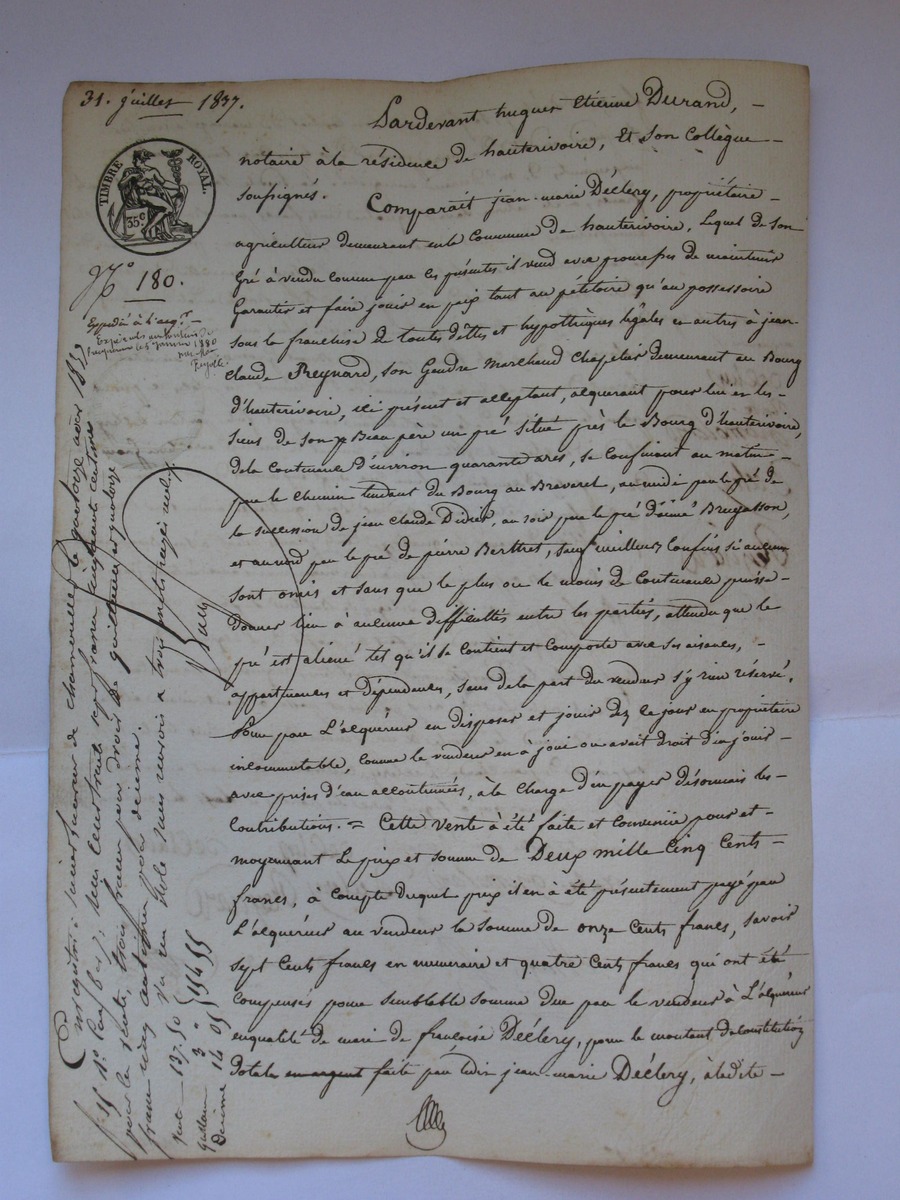 31. Juillet 1837.
TIMBRE ROYAL.
35 c
N.° 180.
Expédié à l'acq.r
Pardevant hugues Etienne Durand,
notaire à la résidence de hauterivoire, Et son Collègue
soussignés.
Comparait jean-marie Déclery, propriétaire
agriculteur demeurant en la Commune de hauterivoire, Lequel de son
Gré à vendu comme par ces présentes il vend avec promesse de maintenir
Garantir et faire jouir en paix tant au pétitoire qu'au possessoire
sous la franchise de toutes dettes et hypothèques légales et autres à jean
Claude Reynard, son Gendre Marchand Chapelier demeurant au Bourg
d'hauterivoire, ici présent et acceptant, acquérant pour lui en les
siens de son Beau père un pré situé près le Bourg d'hauterivoire,
de la Contenance d'environ quarante ares, se Confinant au matin
par le chemin tendant du Bourg au Braveret, au midi par le pré de
la succession de jean Claude Didier, au soir par le pré d'aimé Bruyasson,
et au nord par le pré de pierre Berthet, sauf meilleurs Confins si aucuns
sont omis et sans que le plus ou le moins de Contenance puisse
donner lieu à aucune difficultés entre les parties, attendu que le
pré est aliéné tel qu'il se Contient et Comporte avec ses aisances,
appartenances et dépendances, sans de la part du vendeur s'y rien réservé.
Pour par L'acquéreur en disposer et jouir dez ce jour en propriétaire
incommutable, comme le vendeur en à joui ou avait droit d'en jouir
avec prises d'eau accoutumées, à la charge d'en payer désormais les
Contributions. = Cette vente à été faite et Convenue pour et
moyennant Le prix et somme de Deux mille Cinq Cents
francs, à Compte duquel prix il en à été présentement payé par
L'acquéreur au vendeur la somme de onze Cents francs, savoir
sept Cents francs en numéraire et quatre Cents francs qui ont été
Compensés pour semblable somme due par le vendeur à L'acquéreur
en qualité de mari de françoise Déclery, pour le montant de constitution
dotale en argent faite par ledit jean-marie Déclery, à ladite
Enregistré à
le quatorze août 1837
reçu cent trente sept francs cinquante centimes
pour la vente, trois francs pour droits de
décime.
vente 137.50
quittance 3 "
Décime 14 05
154 55